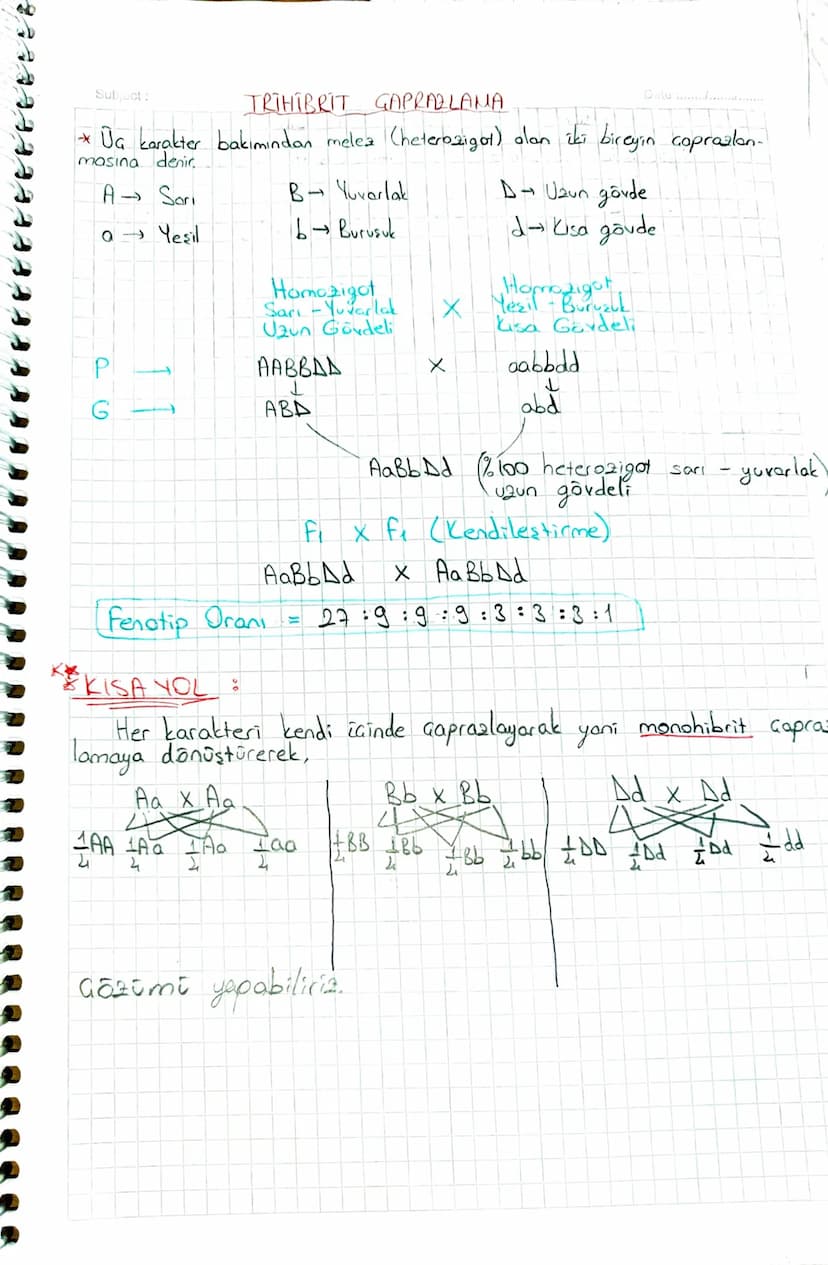 Subject :
Date ......./......./.......
TRİHİBRİT ÇAPRAZLAMA
* Üç karakter bakımından melez (heterozigot) olan iki bireyin çaprazlan-
masına denir.
A → Sarı B → Yuvarlak D → Uzun gövde
a → Yeşil b → Buruşuk d → Kısa gövde
Homozigot Homozigot
Sarı - Yuvarlak X Yeşil - Buruşuk
Uzun Gövdeli Kısa Gövdeli
P → AABBDD x aabbdd
G → ABD abd
AaBbDd (%100 heterozigot sarı - yuvarlak)
uzun gövdeli
F1 x F1 (Kendileştirme)
AaBbDd x AaBbDd
Fenotip Oranı = 27 : 9 : 9 : 9 : 3 : 3 : 3 : 1
KISA YOL :
Her karakteri kendi içinde çaprazlayarak yani monohibrit çapraz
lamaya dönüştürerek,
Aa x Aa Bb x Bb Dd x Dd
1/4 AA 1/4 Aa 1/4 Aa 1/4 aa 1/4 BB 1/4 Bb 1/4 Bb 1/4 bb 1/4 DD 1/4 Dd 1/4 Dd 1/4 dd
Çözümü yapabiliriz.